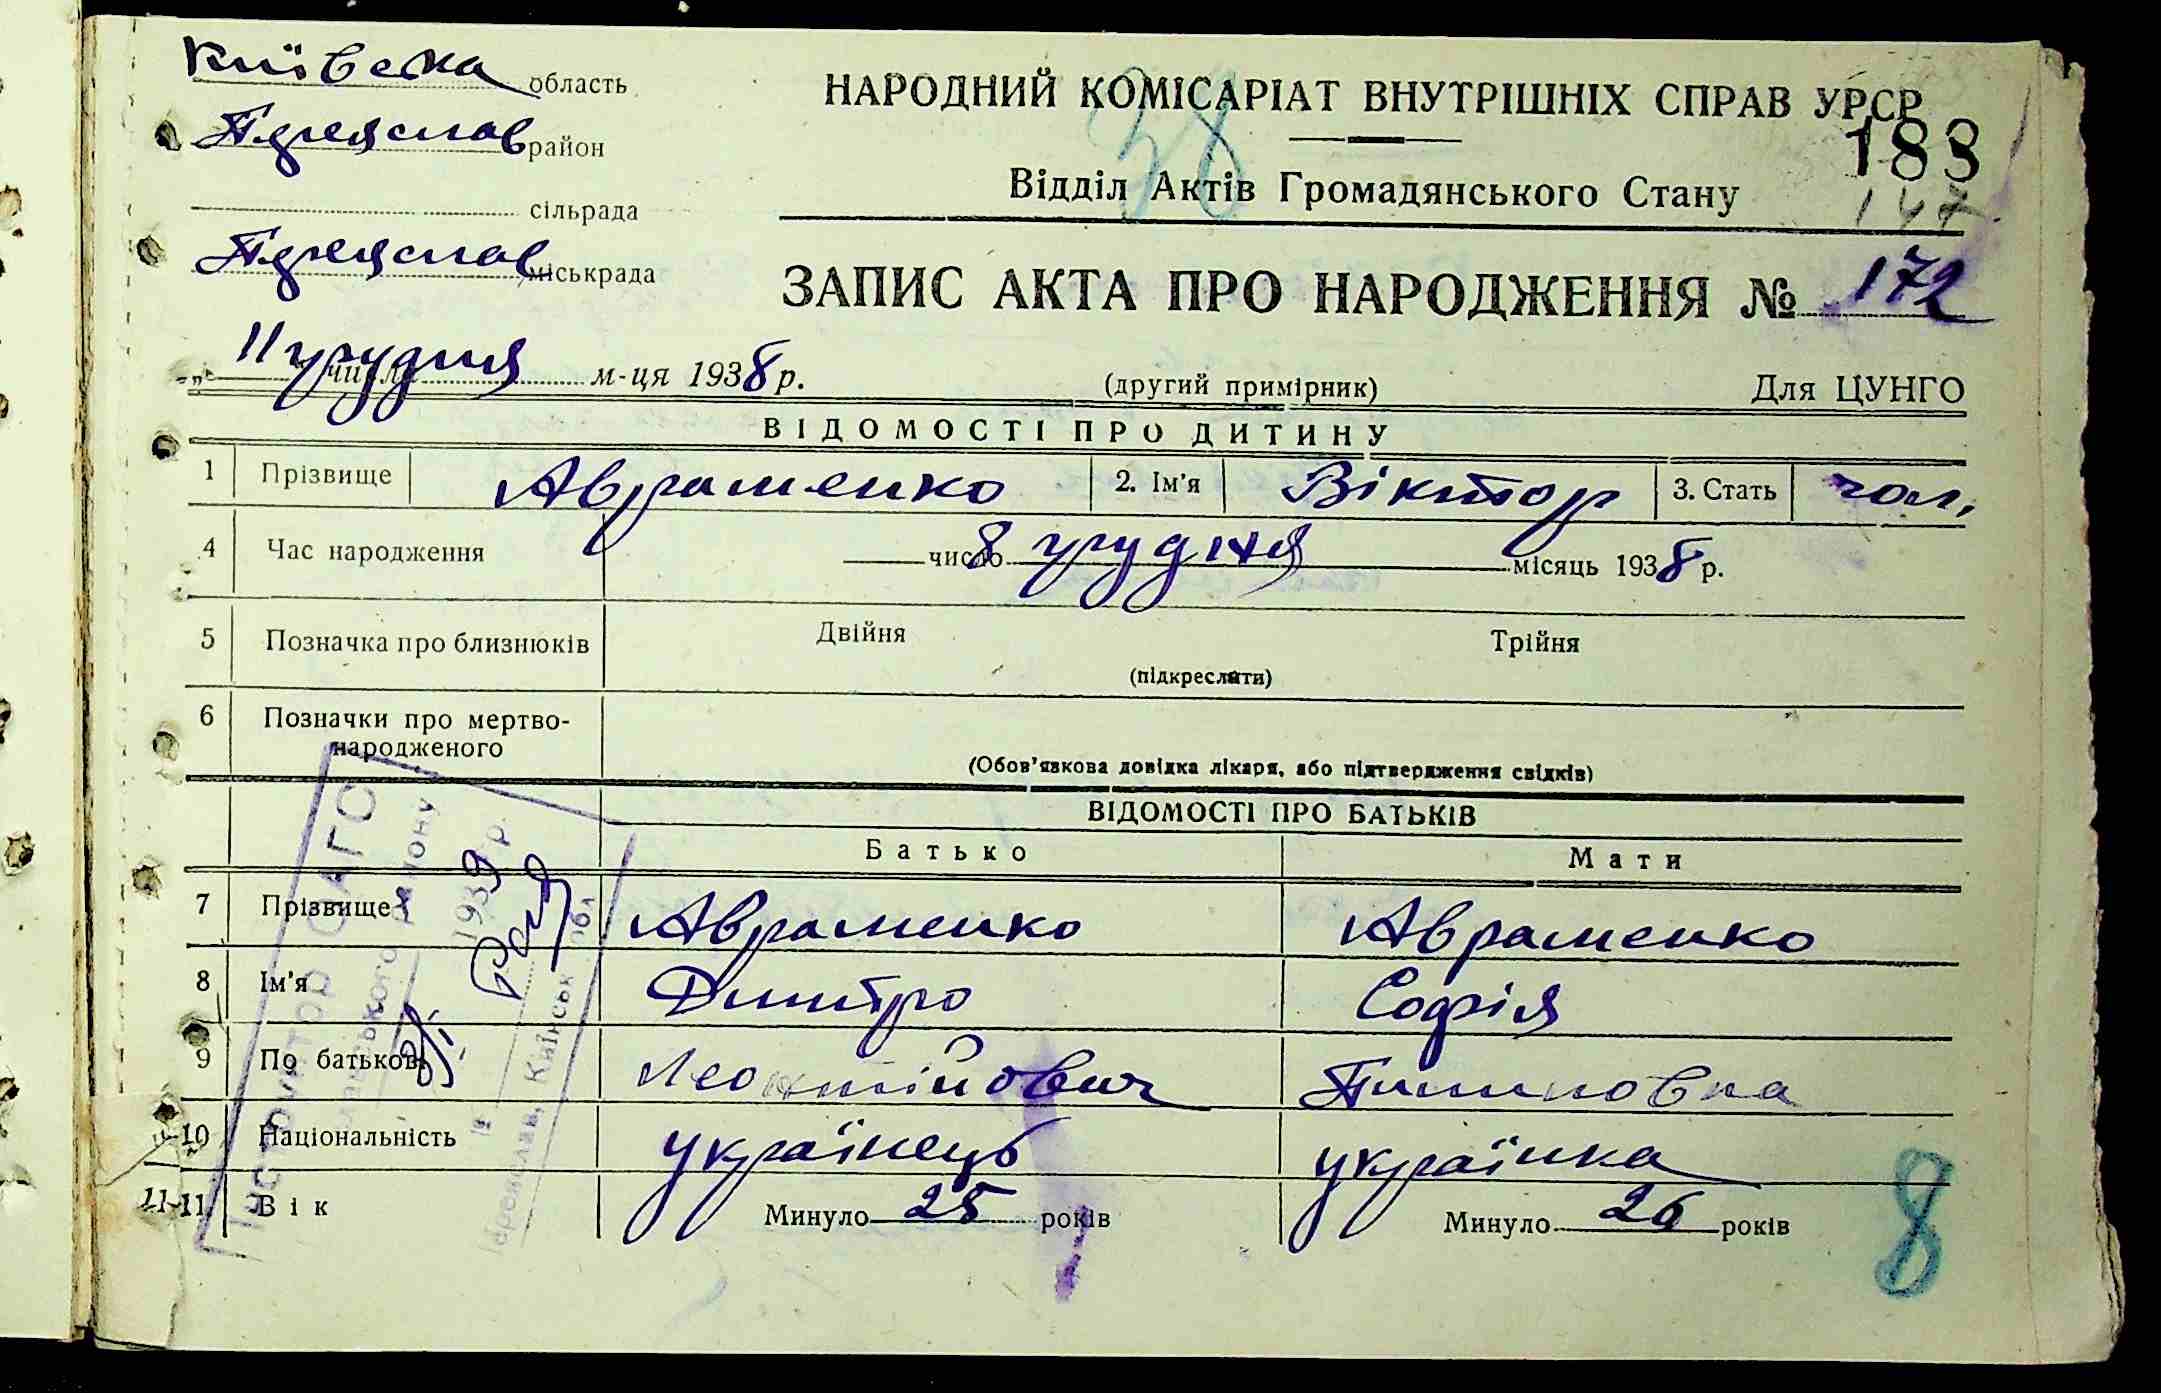 Київська область
Переяслав район
сільрада
Переяслав міськрада
НАРОДНИЙ КОМІСАРІАТ ВНУТРІШНІХ СПРАВ УРСР
38
183
Відділ Актів Громадянського Стану
147
ЗАПИС АКТА ПРО НАРОДЖЕННЯ № 172
„ 11 " числа грудня м-ця 1938 р.
(другий примірник)
Для ЦУНГО
ВІДОМОСТІ ПРО ДИТИНУ
1 Прізвище Авраменко 2. Ім'я Віктор 3. Стать чол.
4 Час народження 8 число грудня місяць 1938 р.
5 Позначка про близнюків Двійня Трійня
(підкреслити)
6 Позначки про мертво-
народженого
(Обов'язкова довідка лікаря, або підтвердження свідків)
ВІДОМОСТІ ПРО БАТЬКІВ
Батько Мати
7 Прізвище Авраменко Авраменко
8 Ім'я Дмитро Софія
9 По батькові Леонтійович
10 Національність українець українка
11 Вік Минуло 25 років Минуло 26 років
8
Інспектор ОАГС
району
1939 р.
Переяслав, Київськ. обл.